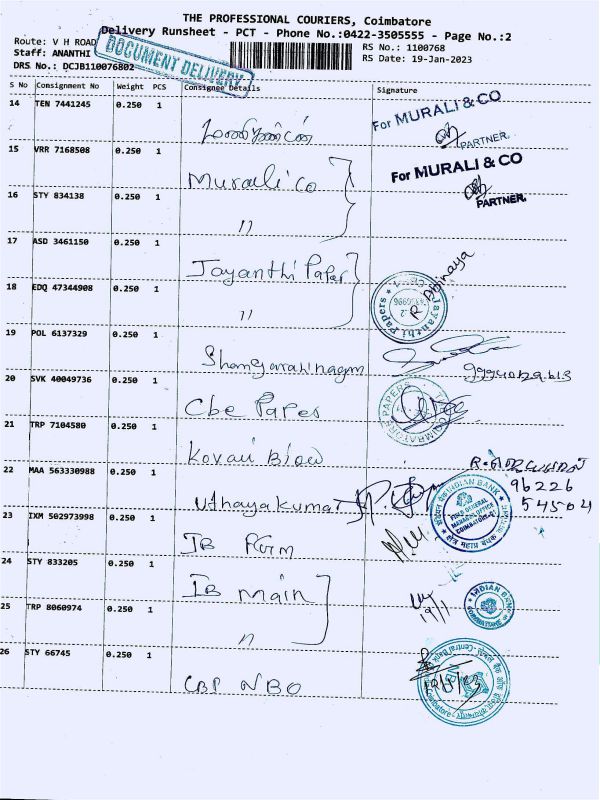 THE PROFESSIONAL COURIERS, Coimbatore
Delivery Runsheet - PCT - Phone No.:0422-3505555 - Page No.:2
Route: V H ROAD
RS No.: 1100768
Staff: ANANTHI
RS Date: 19-Jan-2023
DRS No.: DCJB110076802
DOCUMENT DELIVERY
S No Consignment No Weight PCS Consignee Details Signature
14 TEN 7441245 0.250 1
For MURALI & CO
PARTNER.
15 VRR 7168508 0.250 1 Murali co
For MURALI & CO
PARTNER.
16 STY 834138 0.250 1 11
17 ASD 3461150 0.250 1 Jayanthi Paper
R Abinaya
18 EDQ 47344908 0.250 1 11
Jayanthi Papers
19 POL 6137329 0.250 1
20 SVK 40049736 0.250 1 Cbe Papes
COIMBATORE PAPERS
21 TRP 7104580 0.250 1 Kovai
22 MAA 563330988 0.250 1 Uthayakumar
96226
54504
INDIAN BANK
FIELD GENERAL
MANAGER OFFICE
COIMBATORE
23 IXM 502973998 0.250 1 IB
24 STY 833205 0.250 1 IB main
19/1
INDIAN BANK
COIMBATORE
25 TRP 8060974 0.250 1 11
26 STY 66745 0.250 1 CBP NBO
Central Bank
Coimbatore